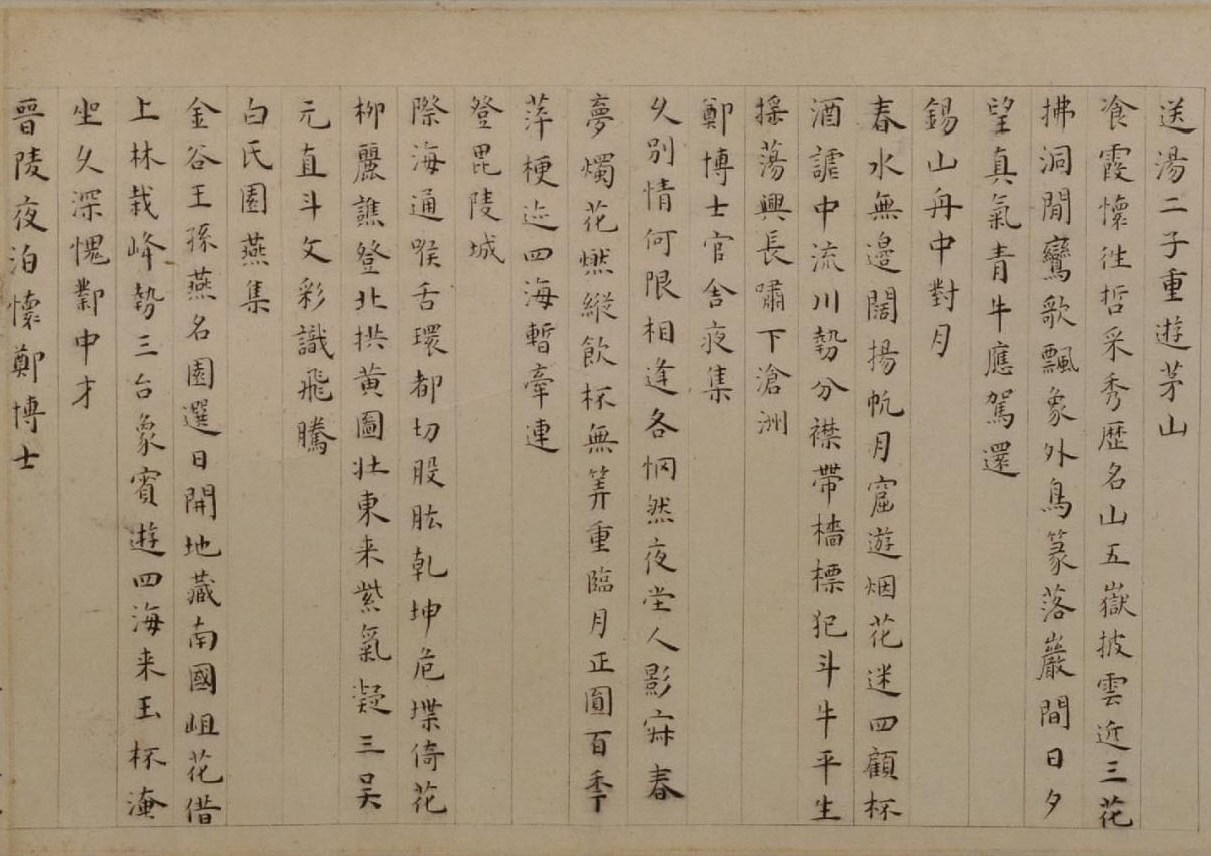 送湯二子重遊茅山
飡霞懷往哲采秀歷名山五嶽披雲近三花
拂洞閒鸞歌飄象外鳥篆落巖間日夕
望真氣青牛應駕還
錫山舟中對月
春水無邊闊揚帆月窟遊烟花迷四顧杯
酒謔中流川勢分襟帶檣標犯斗牛平生
搖蕩興長嘯下滄洲
鄭博士官舍夜集
久別情何限相逢各惘然夜堂人影寂春
夢燭花燃縱飲杯無筭重臨月正圓百年
萍梗迹四海暫牽連
登毘陵城
際海通喉舌環都切股肱乾坤危堞倚花
柳麗譙登北拱黃圖壯東来紫氣凝三吴
元直斗文彩識飛騰
白氏園燕集
金谷王孫燕名園選日開地藏南國岨花借
上林栽峰勢三台象賓遊四海来玉杯淹
坐久深愧鄴中才
晉陵夜泊懷鄭博士